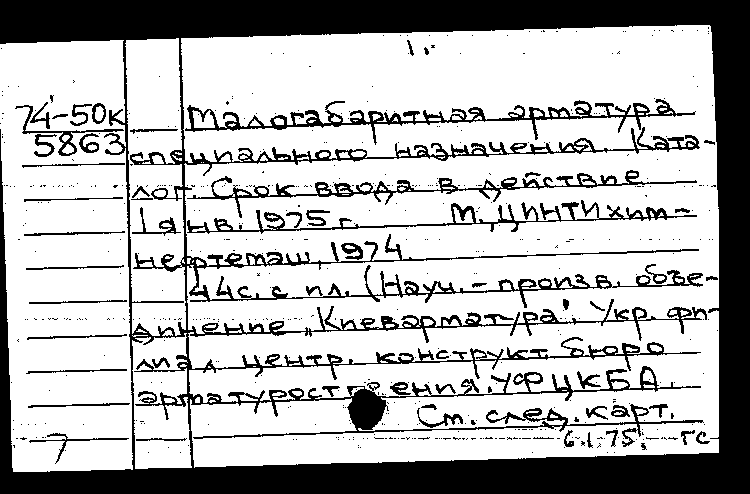 1.
74-50к
5863
Малогабаритная арматура
специального назначения. Ката-
лог. Срок ввода в действие
1 янв. 1975 г. М., ЦИНТИхим-
нефтемаш, 1974.
44с. с ил. (Науч.-произв. объе-
динение „Киеварматура", Укр. фи-
лиал центр. конструкт. бюро
арматуростроения. УФЦКБА.
См. след. карт.
6.1.75. ГС
7